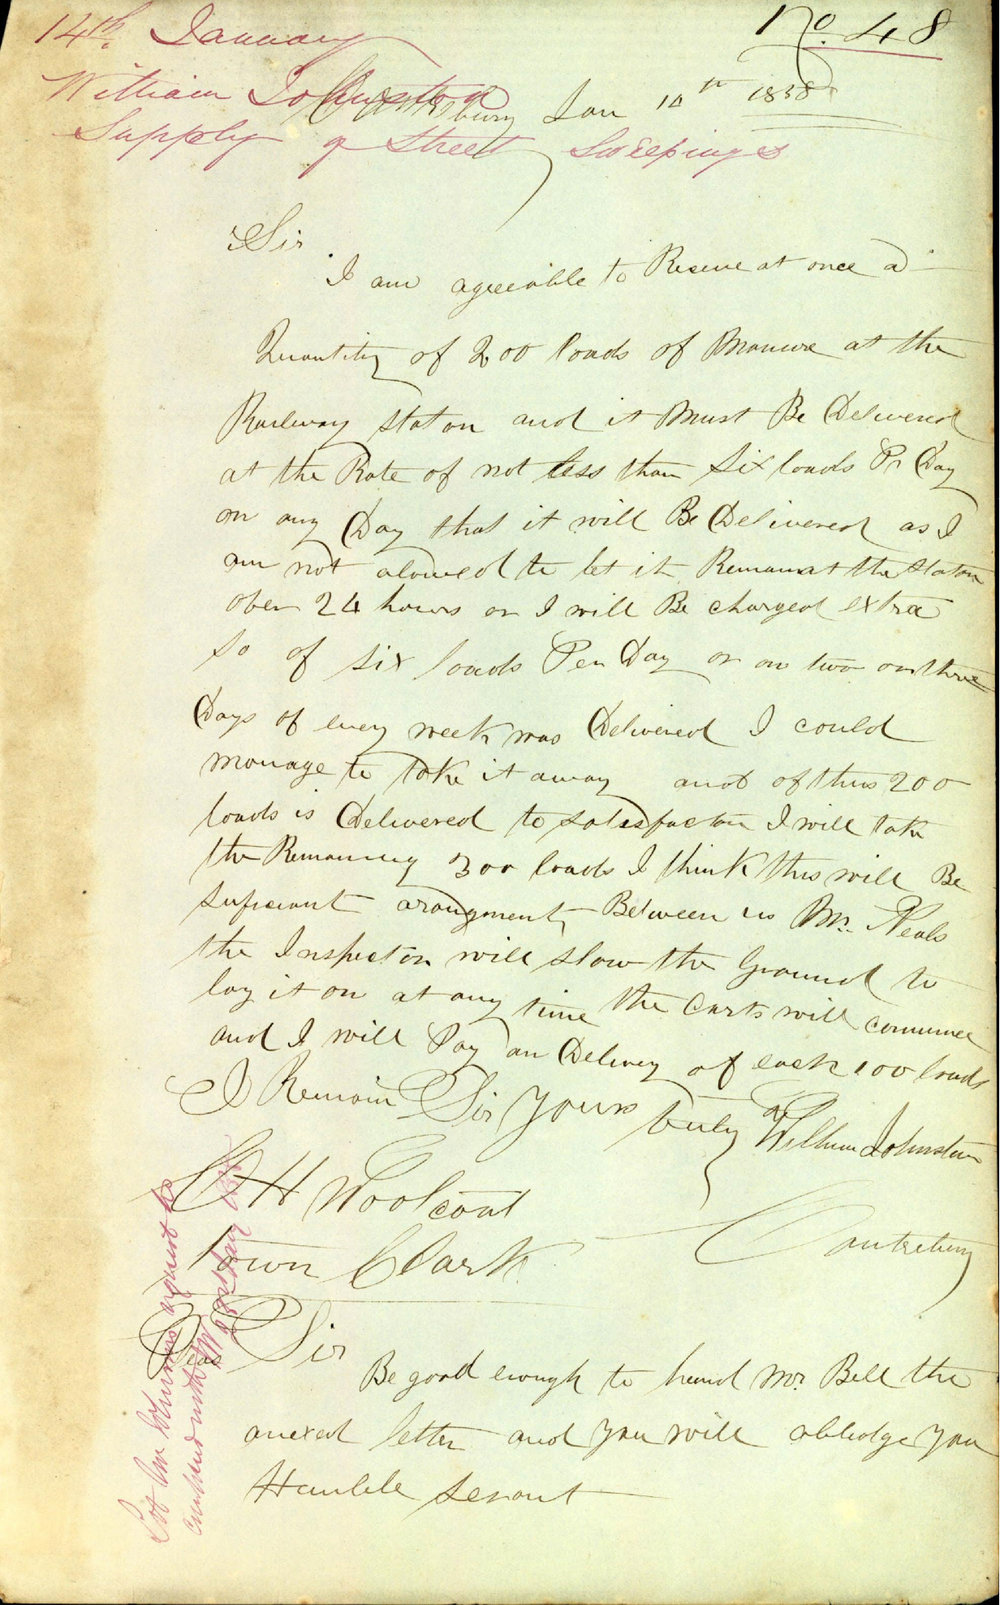 14th January
No. 48
William Johnston
Canterbury Jan 14th 1858
Supply of Street Sweepings
Sir
I am agreeable to Receive at once a
Quantity of 200 loads of Manure at the
Railway staton and it Must Be Delivered
at the Rate of not less than Six loads Pr Day
on any Day that it will Be Delivered as I
am not alowed to let it Remain at the staton
over 24 hours or I will Be charged extra
So if six loads Per Day or on two or three
Days of every week was Delivered I could
manage to take it away and if this 200
loads is Delivered to satisfacton I will take
the Remaining 300 loads I think this will Be
sufisant arangment Between us Mr. Neals
the Inspector will show the Ground to
lay it on at any time the carts will commence
and I will Pay on Delivery of each 100 loads
I Remain Sir Yours truly William Johnston
C H Woolcott
Canterbury
Town Clark
Dear Sir
Be good enough to hand Mr. Bell the
anexed letter and you will obledge your
Humble servant